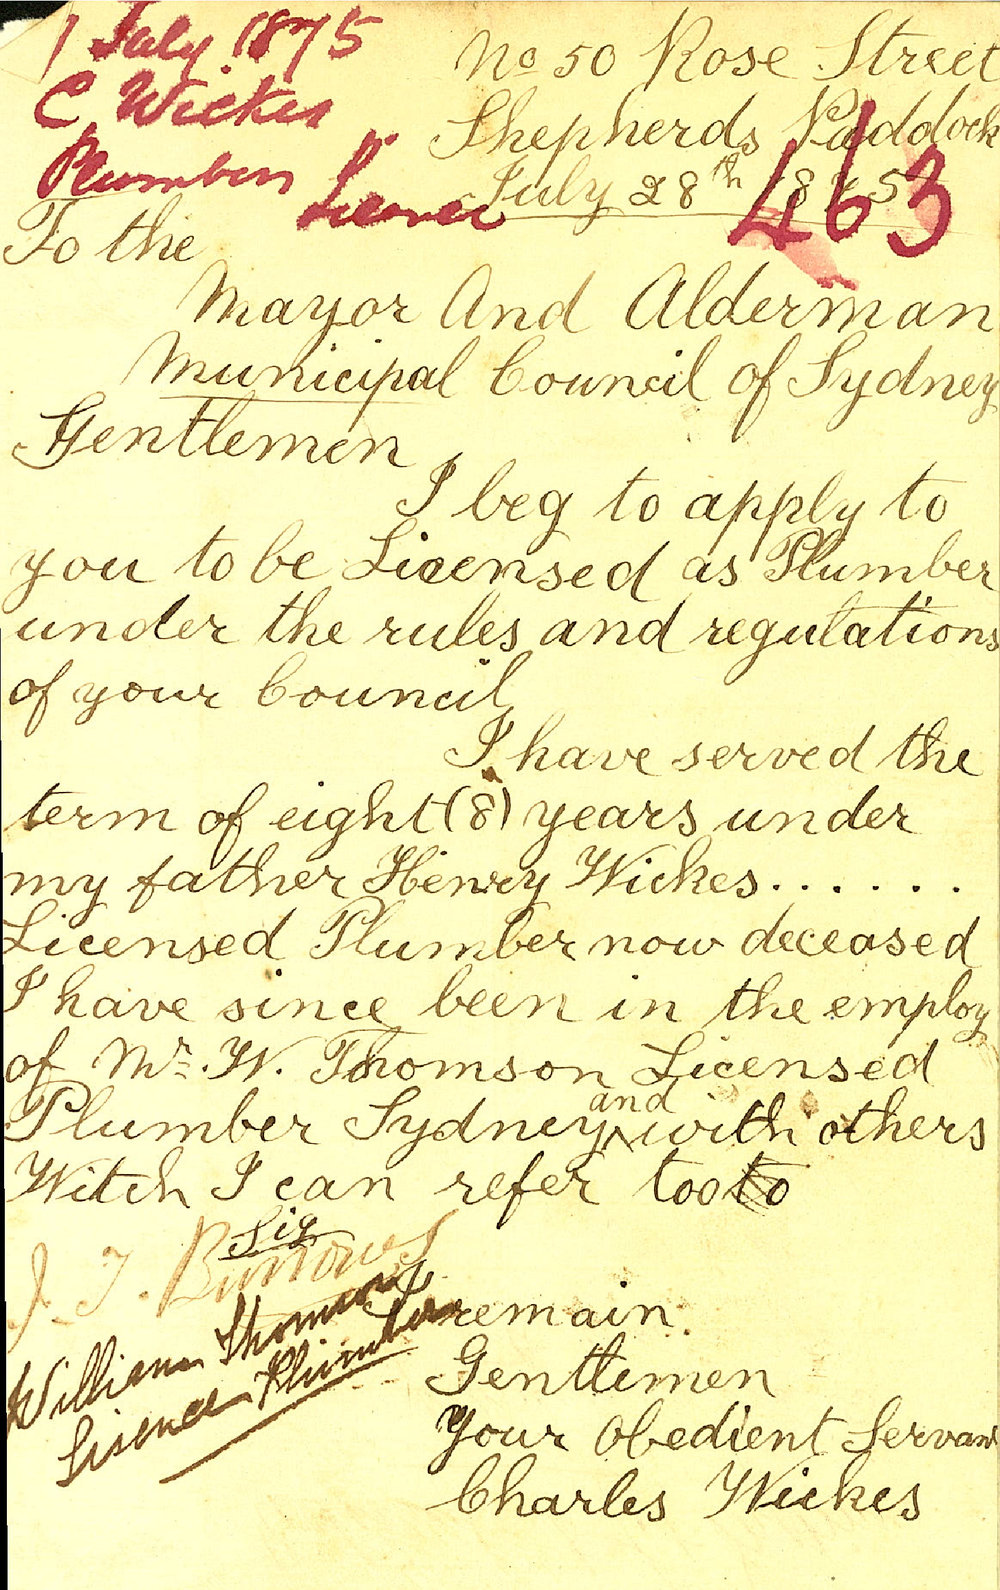 1 July 1875
C Wickes
Plumbers
License
463
No 50 Rose Street
Shepherds Paddock
July 28th 1875
To the
Mayor And Alderman
Municipal Council of Sydney
Gentlemen
I beg to apply to
you to be Licensed as Plumber
under the rules and regulations
of your Council
I have served the
term of eight (8) years under
my father Henry Wickes......
Licensed Plumber now deceased
I have since been in the employ
of Mr. W. Thomson Licensed
Plumber Sydney and with others
Witch I can refer too to
Sig
J. T. Burrows
William Thomson
Lisencen Plumber
I remain
Gentlemen
Your Obedient Servant
Charles Wickes